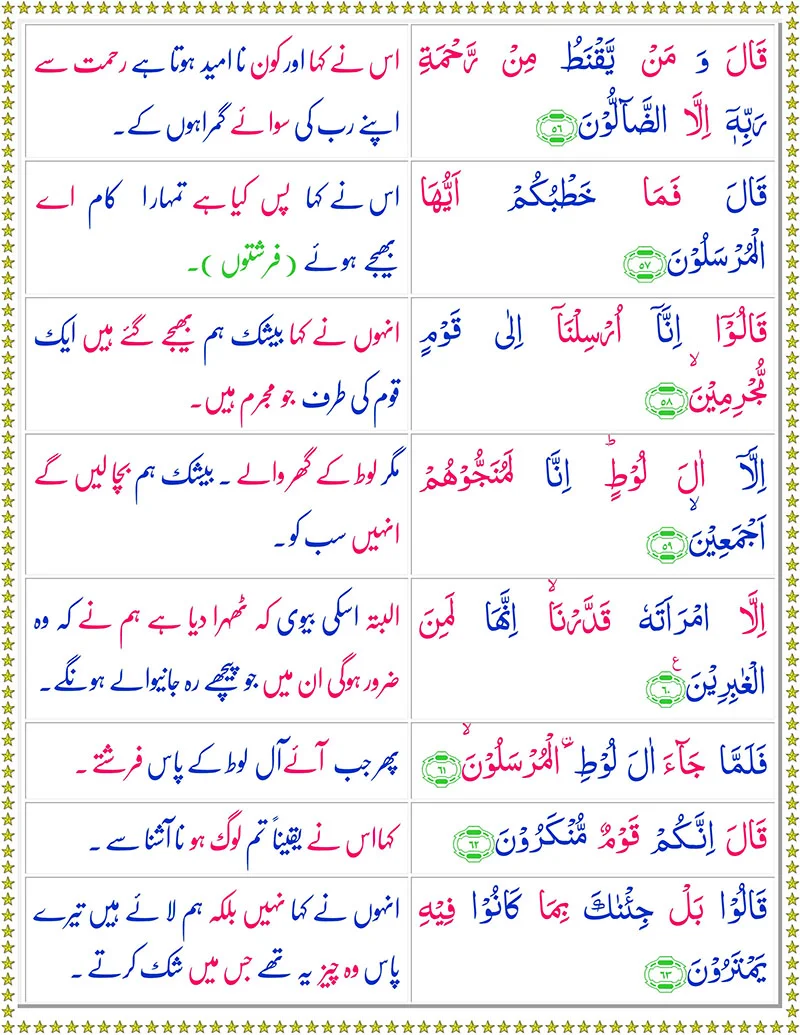 قَالَ وَ مَنْ يَّقْنَطُ مِنْ رَّحْمَةِ
رَبِّهٖۤ اِلَّا الضَّآلُّوْنَ ﴿۵۶﴾
اس نے کہا اور کون نا امید ہوتا ہے رحمت سے
اپنے رب کی سوائے گمراہوں کے۔
قَالَ فَمَا خَطْبُكُمْ اَيُّهَا
الْمُرْسَلُوْنَ ﴿۵۷﴾
اس نے کہا پس کیا ہے تمہارا کام اے
بھیجے ہوئے (فرشتوں)۔
قَالُوْۤا اِنَّاۤ اُرْسِلْنَاۤ اِلٰى قَوْمٍ
مُّجْرِمِيْنَ ۙ﴿۵۸﴾
انہوں نے کہا بیشک ہم بھیجے گئے ہیں ایک
قوم کی طرف جو مجرم ہیں۔
اِلَّاۤ اٰلَ لُوْطٍ ؕ اِنَّا لَمُنَجُّوْهُمْ
اَجْمَعِيْنَ ۙ﴿۵۹﴾
مگر لوط کے گھر والے ۔ بیشک ہم بچا لیں گے
انہیں سب کو۔
اِلَّا امْرَاَتَهٗ قَدَّرْنَاۤ ۙ اِنَّهَا لَمِنَ
الْغٰبِرِيْنَ ﴿۶۰﴾ ع
البتہ اسکی بیوی کہ ٹھہرا دیا ہے ہم نے کہ وہ
ضرور ہوگی ان میں جو پیچھے رہ جانیوالے ہونگے۔
فَلَمَّا جَآءَ اٰلَ لُوْطِ ۟ الْمُرْسَلُوْنَ ۙ﴿۶۱﴾
پھر جب آئے آل لوط کے پاس فرشتے ۔
قَالَ اِنَّكُمْ قَوْمٌ مُّنْكَرُوْنَ ﴿۶۲﴾
کہا اس نے یقیناً تم لوگ ہو نا آشنا سے ۔
قَالُوْا بَلْ جِئْنٰكَ بِمَا كَانُوْا فِيْهِ
يَمْتَرُوْنَ ﴿۶۳﴾
انہوں نے کہا نہیں بلکہ ہم لائے ہیں تیرے
پاس وہ چیز یہ تھے جس میں شک کرتے ۔